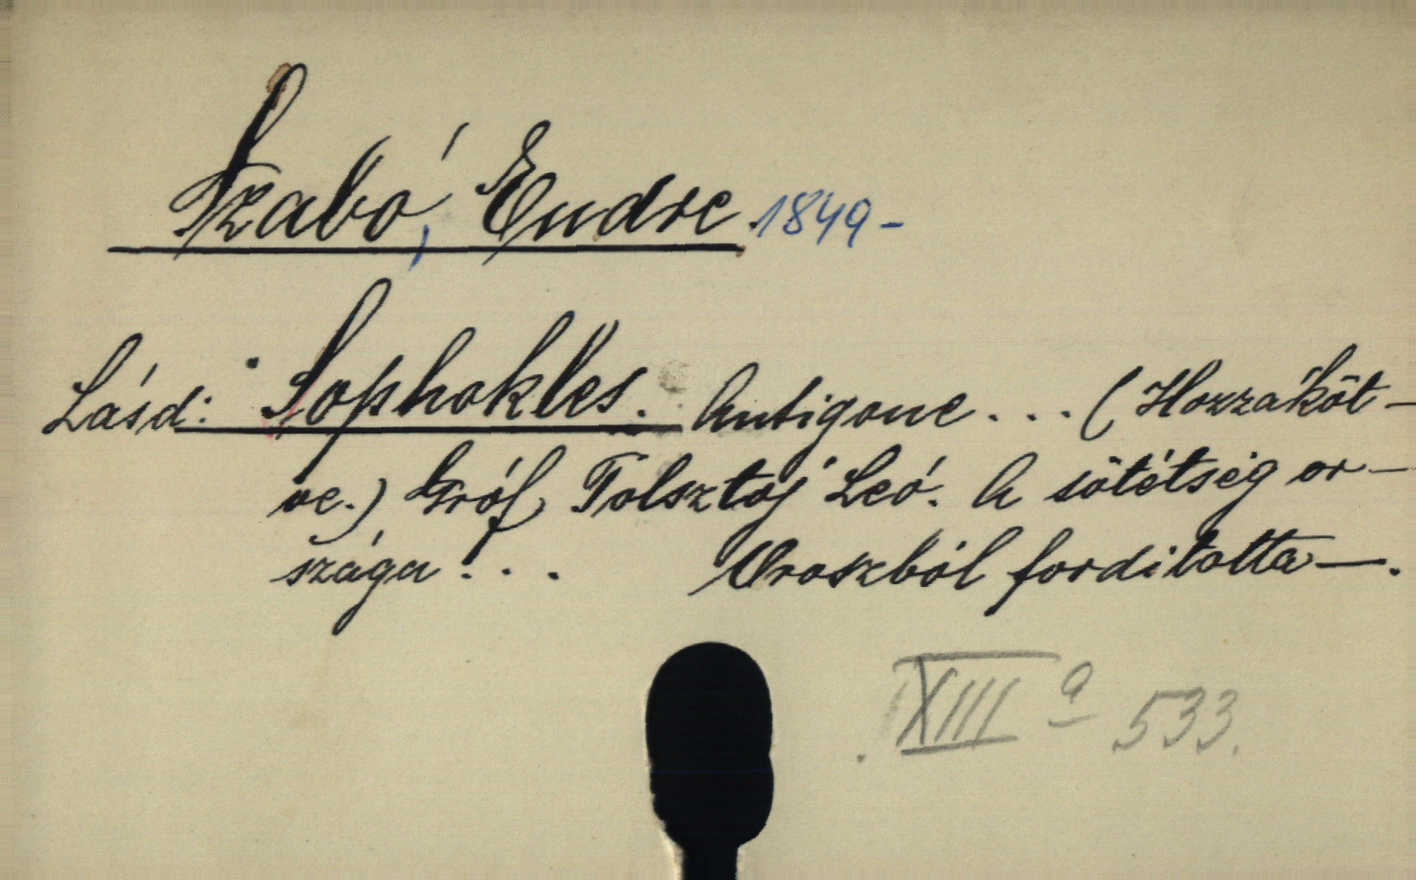 Szabó, Endre 1849-
Lásd: Sophokles. Antigone... (Hozzáköt-
ve.) Gróf Tolsztoj Leó. A sötétség or-
szága!... Oroszból forditotta —.
XIII a 533.